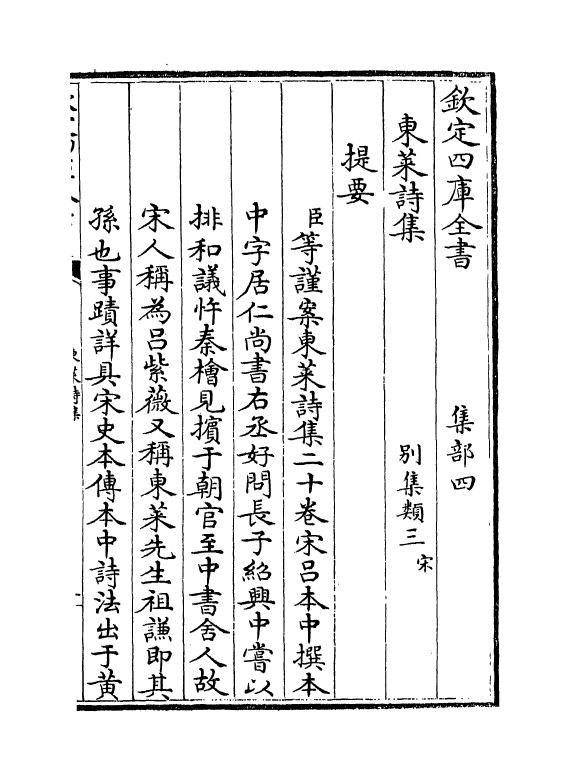 欽定四庫全書　集部四
東萊詩集　別集類三宋
提要
臣等謹案東萊詩集二十卷宋呂本中撰本
中字居仁尚書右丞好問長子紹興中嘗以
排和議忤秦檜見擯于朝官至中書舍人故
宋人稱為呂紫薇又稱東萊先生祖謙即其
孫也事蹟詳具宋史本傳本中詩法出于黄
東萊詩集